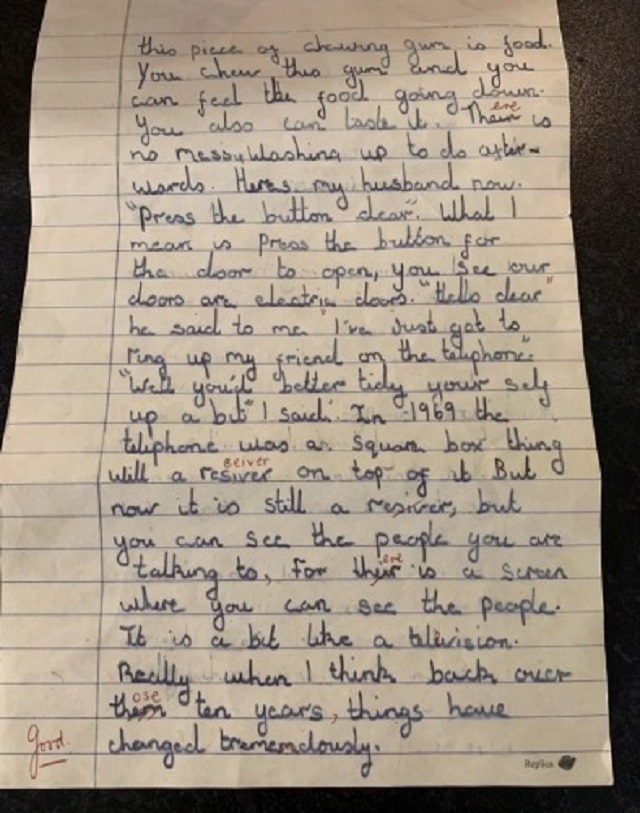 this piece of chewing gum is food.
You chew this gum and you
can feel the food going down.
ere
You also can taste it. Their is
no messy Washing up to do after-
words. Heres my husband now.
"Press the button dear". What I
mean is Press the button for
the door to open, you see our
doors are electric doors. "Hello dear"
he said to me "I've Just got to
ring up my friend on the telephone".
"Well you'd better tidy your self
up a bit" I said. In 1969 the
teliphone was a square box thing
seiver
will a resiver on top of it But
now it is still a resiver, but
you can see the people you are
ere
talking to, for their is a screen
where you can see the people.
It is a bit like a television.
Really when I think back over
ose
them ten years, things have
Good.
changed trememdously.
Replica